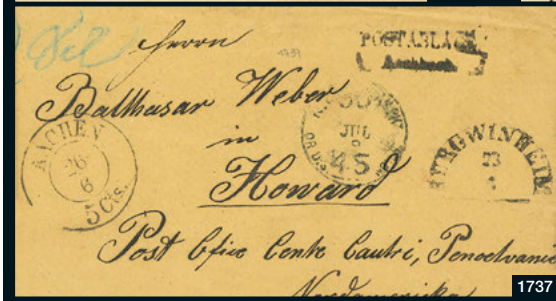 Herrn
POSTABLAGE
Balthasar Weber
in
Howard
AACHEN
26
6
5 Cts.
JUL
45
BURGWINHEIM
23
Post Ofice Cente Cautri, Penselvanie
Nordamerika
1737